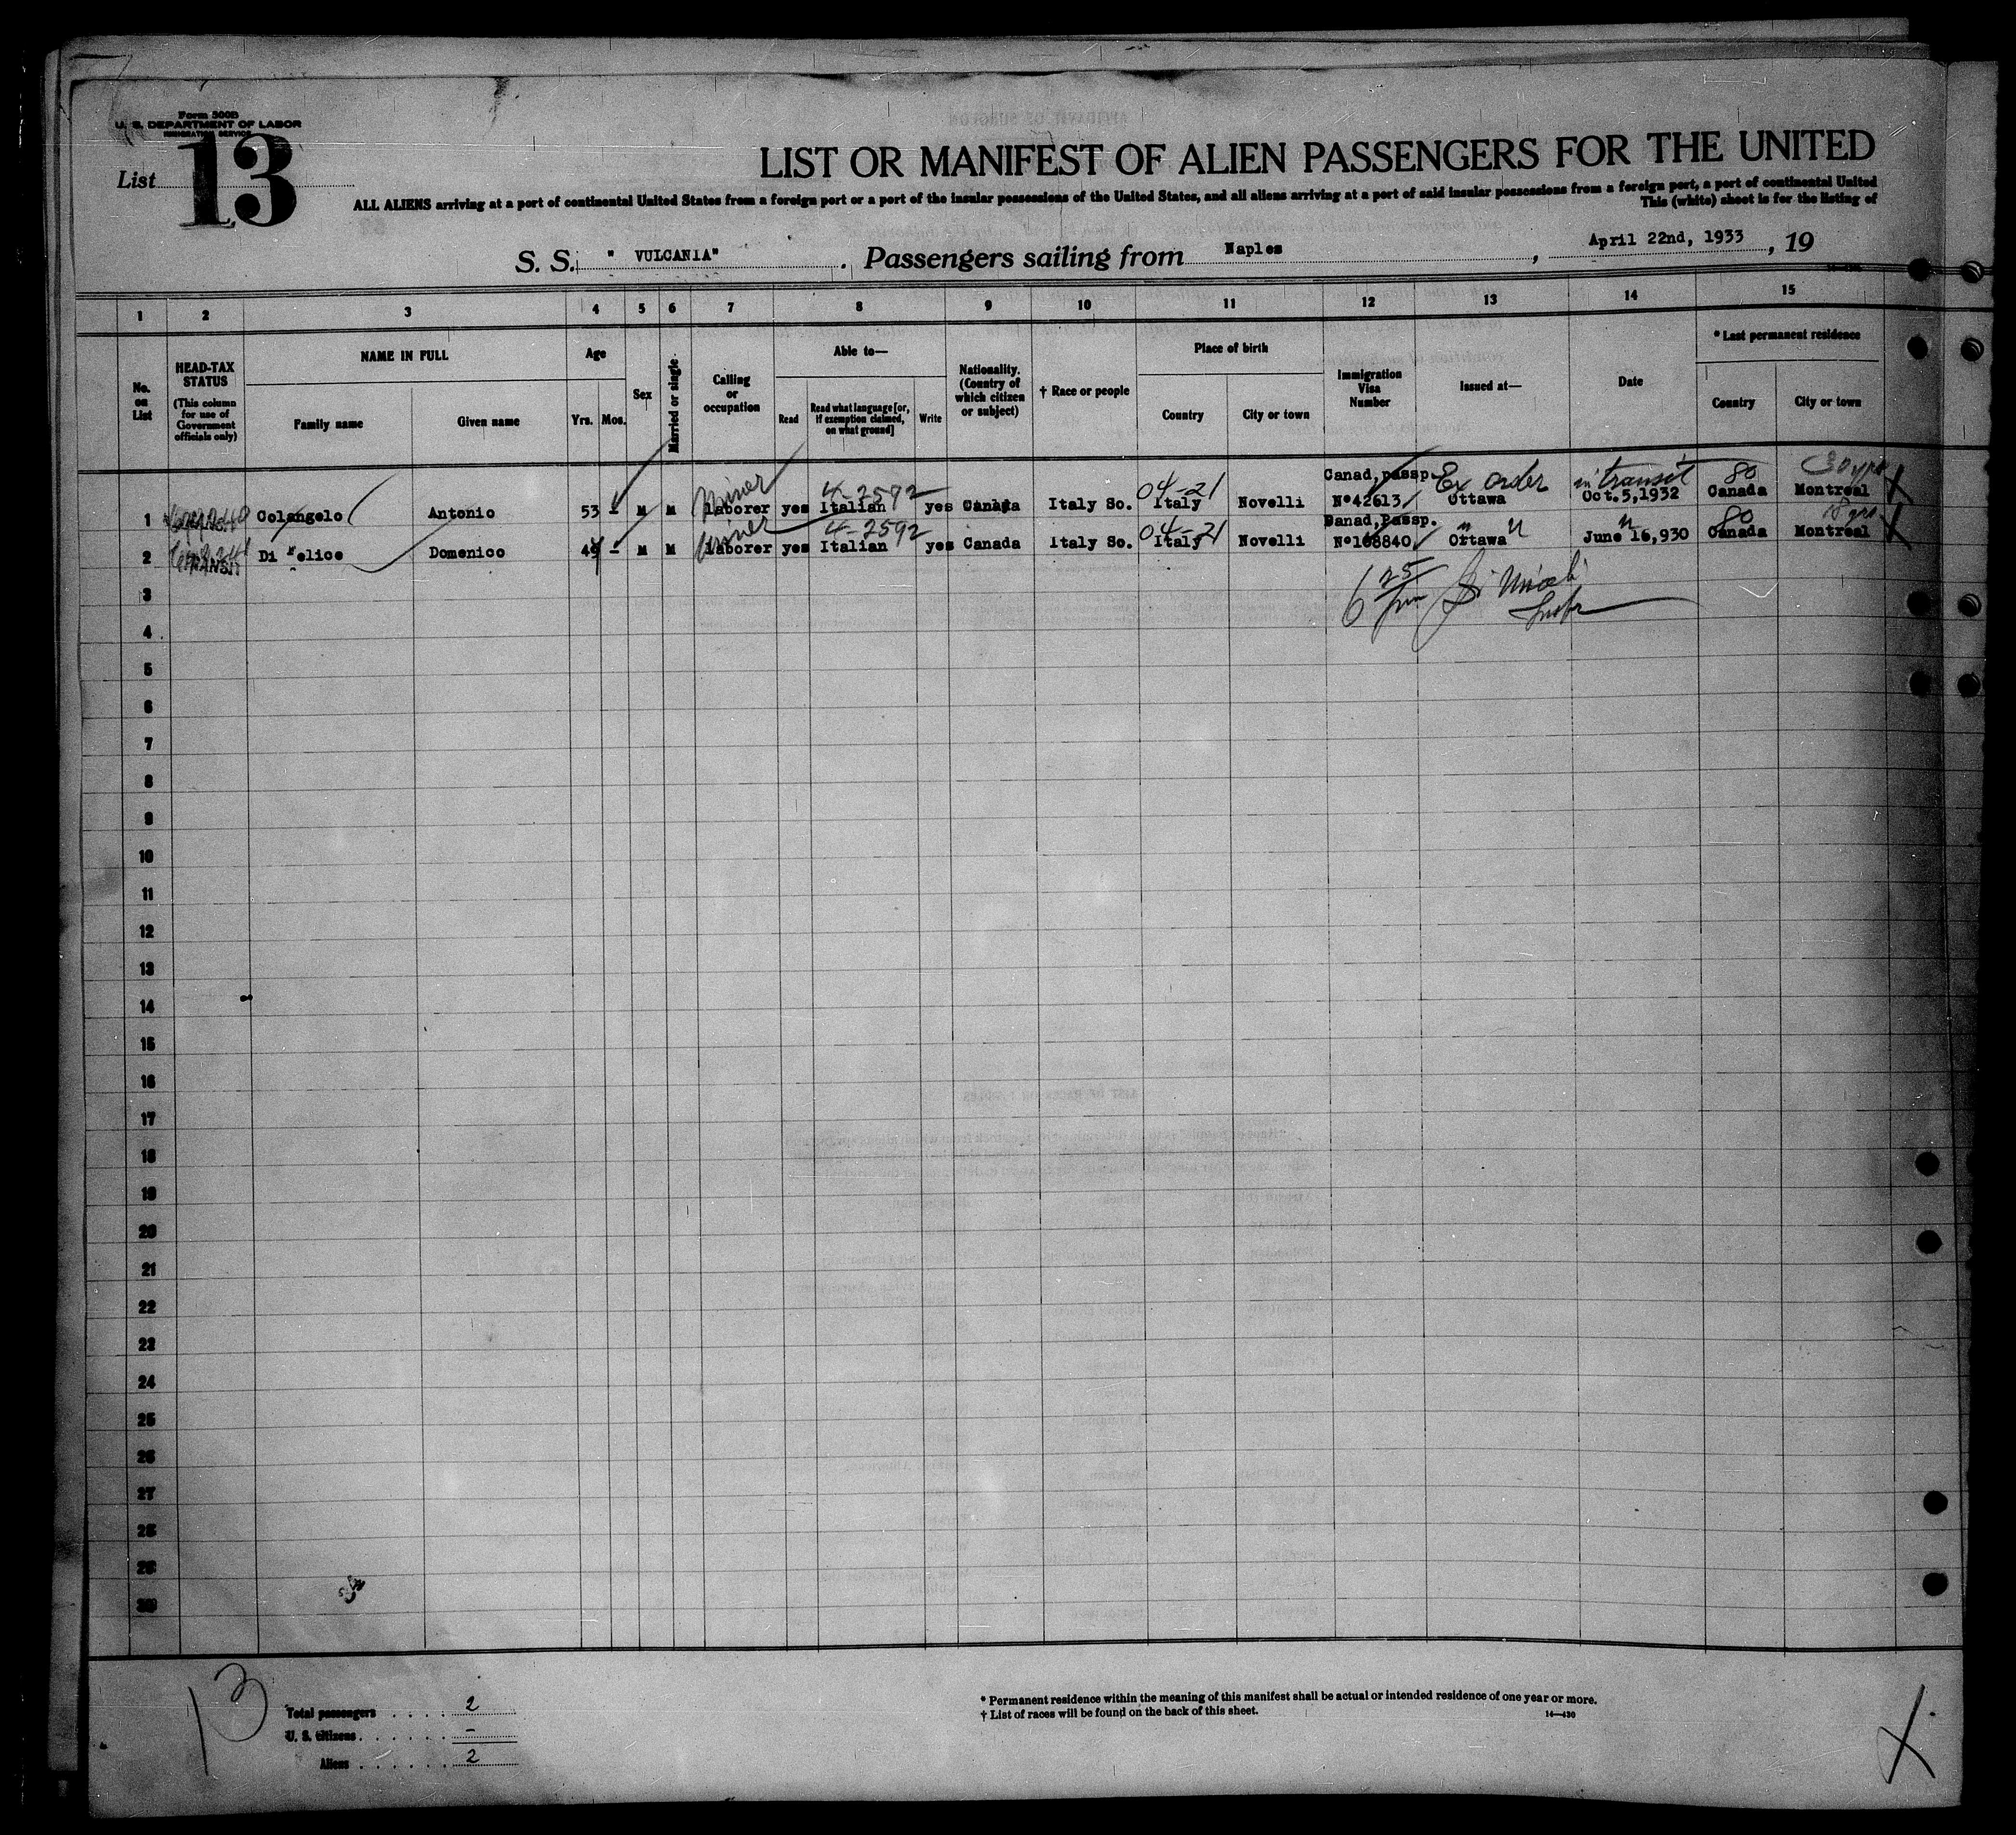 Form 500B
U. S. DEPARTMENT OF LABOR
IMMIGRATION SERVICE
List 13
LIST OR MANIFEST OF ALIEN PASSENGERS FOR THE UNITED
ALL ALIENS arriving at a port of continental United States from a foreign port or a port of the insular possessions of the United States, and all aliens arriving at a port of said insular possessions from a foreign port, a port of continental United
This (white) sheet is for the listing of
S. S. " VULCANIA" . Passengers sailing from Naples , April 22nd, 1933 , 19
1 2 3 4 5 6 7 8 9 10 11 12 13 14 15
No. on List
HEAD-TAX STATUS (This column for use of Government officials only)
NAME IN FULL
Family name
Given name
Age
Yrs. Mos.
Sex
Married or single
Calling or occupation
Able to—
Read
Read what language [or, if exemption claimed, on what ground]
Write
Nationality. (Country of which citizen or subject)
† Race or people
Place of birth
Country
City or town
Immigration Visa Number
Issued at—
Date
* Last permanent residence
Country
City or town
Miner 4-2592 04-21 Canad,passp. Ex order in transit 80 30 yrs
1 Colangelo Antonio 53 - M M laborer yes Italian yes Canada Italy So. Italy Novelli Nº42613 Ottawa Oct.5,1932 Canada Montreal X
Miner 4-2592 04-21 Danad,Passp. " " " 80 yrs
2 TRANSIT Di Felice Domenico 49 - M M laborer yes Italian yes Canada Italy So. Italy Novelli Nº168840 Ottawa June 16,930 Canada Montreal X
6 25
3
4
5
6
7
8
9
10
11
12
13
14
15
16
17
18
19
20
21
22
23
24
25
26
27
28
29
30
13
Total passengers . . . . 2
U. S. citizens . . . . . . –
Aliens . . . . . . 2
* Permanent residence within the meaning of this manifest shall be actual or intended residence of one year or more.
† List of races will be found on the back of this sheet.
14—430
X